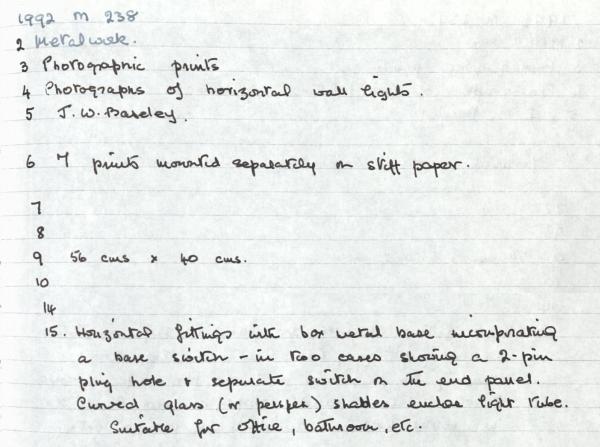 1992 M 238
2 Metalwork.
3 Photographic prints
4 Photographs of horizontal wall lights.
5 J.W. Baseley.
6 7 prints mounted separately on stiff paper.
7
8
9 56 cms x 40 cms.
10
14
15. Horizontal fittings with box metal base incorporating
a base switch - in two cases showing a 2-pin
plug hole & separate switch on the end panel.
Curved glass (or perspex) shades enclose light tube.
Suitable for office, bathroom, etc.